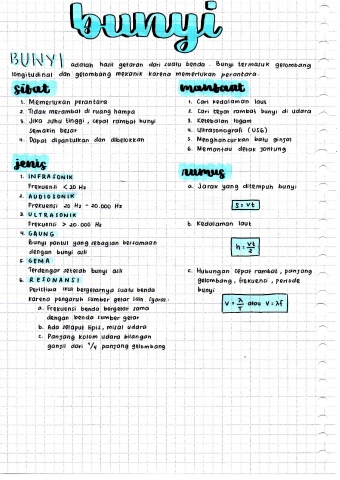 bunyi
BUNYI adalah hasil getaran dari suatu benda. Bunyi termasuk gelombang
longitudinal dan gelombang mekanik karena memerlukan perantara.
sifat
1. Memerlukan perantara
2. Tidak merambat di ruang hampa
3. Jika suhu tinggi, cepat rambat bunyi
semakin besar
4. Dapat dipantulkan dan dibelokkan
manfaat
1. Cari kedalaman laut
2. Cari cepat rambat bunyi di udara
3. Ketebalan logam
4. Ultrasonografi (USG)
5. Menghancurkan batu ginjal
6. Memantau detak jantung
jenis
1. INFRASONIK
Frekuensi < 20 Hz
2. AUDIOSONIK
Frekuensi 20 Hz - 20.000 Hz
3. ULTRASONIK
Frekuensi > 20.000 Hz
4. GAUNG
Bunyi pantul yang sebagian bersamaan
dengan bunyi asli
5. GEMA
Terdengar setelah bunyi asli
6. RESONANSI
Peristiwa ikut bergetarnya suatu benda
karena pengaruh sumber getar lain. Syarat:
a. Frekuensi benda bergetar sama
dengan benda sumber getar
b. Ada selaput tipis, misal udara
c. Panjang kolom udara bilangan
ganjil dari 1/4 panjang gelombang
rumus
a. Jarak yang ditempuh bunyi
s = vt
b. Kedalaman laut
h = vt/2
c. Hubungan cepat rambat, panjang
gelombang, frekuensi, periode
bunyi
v = λ/T atau v = λf